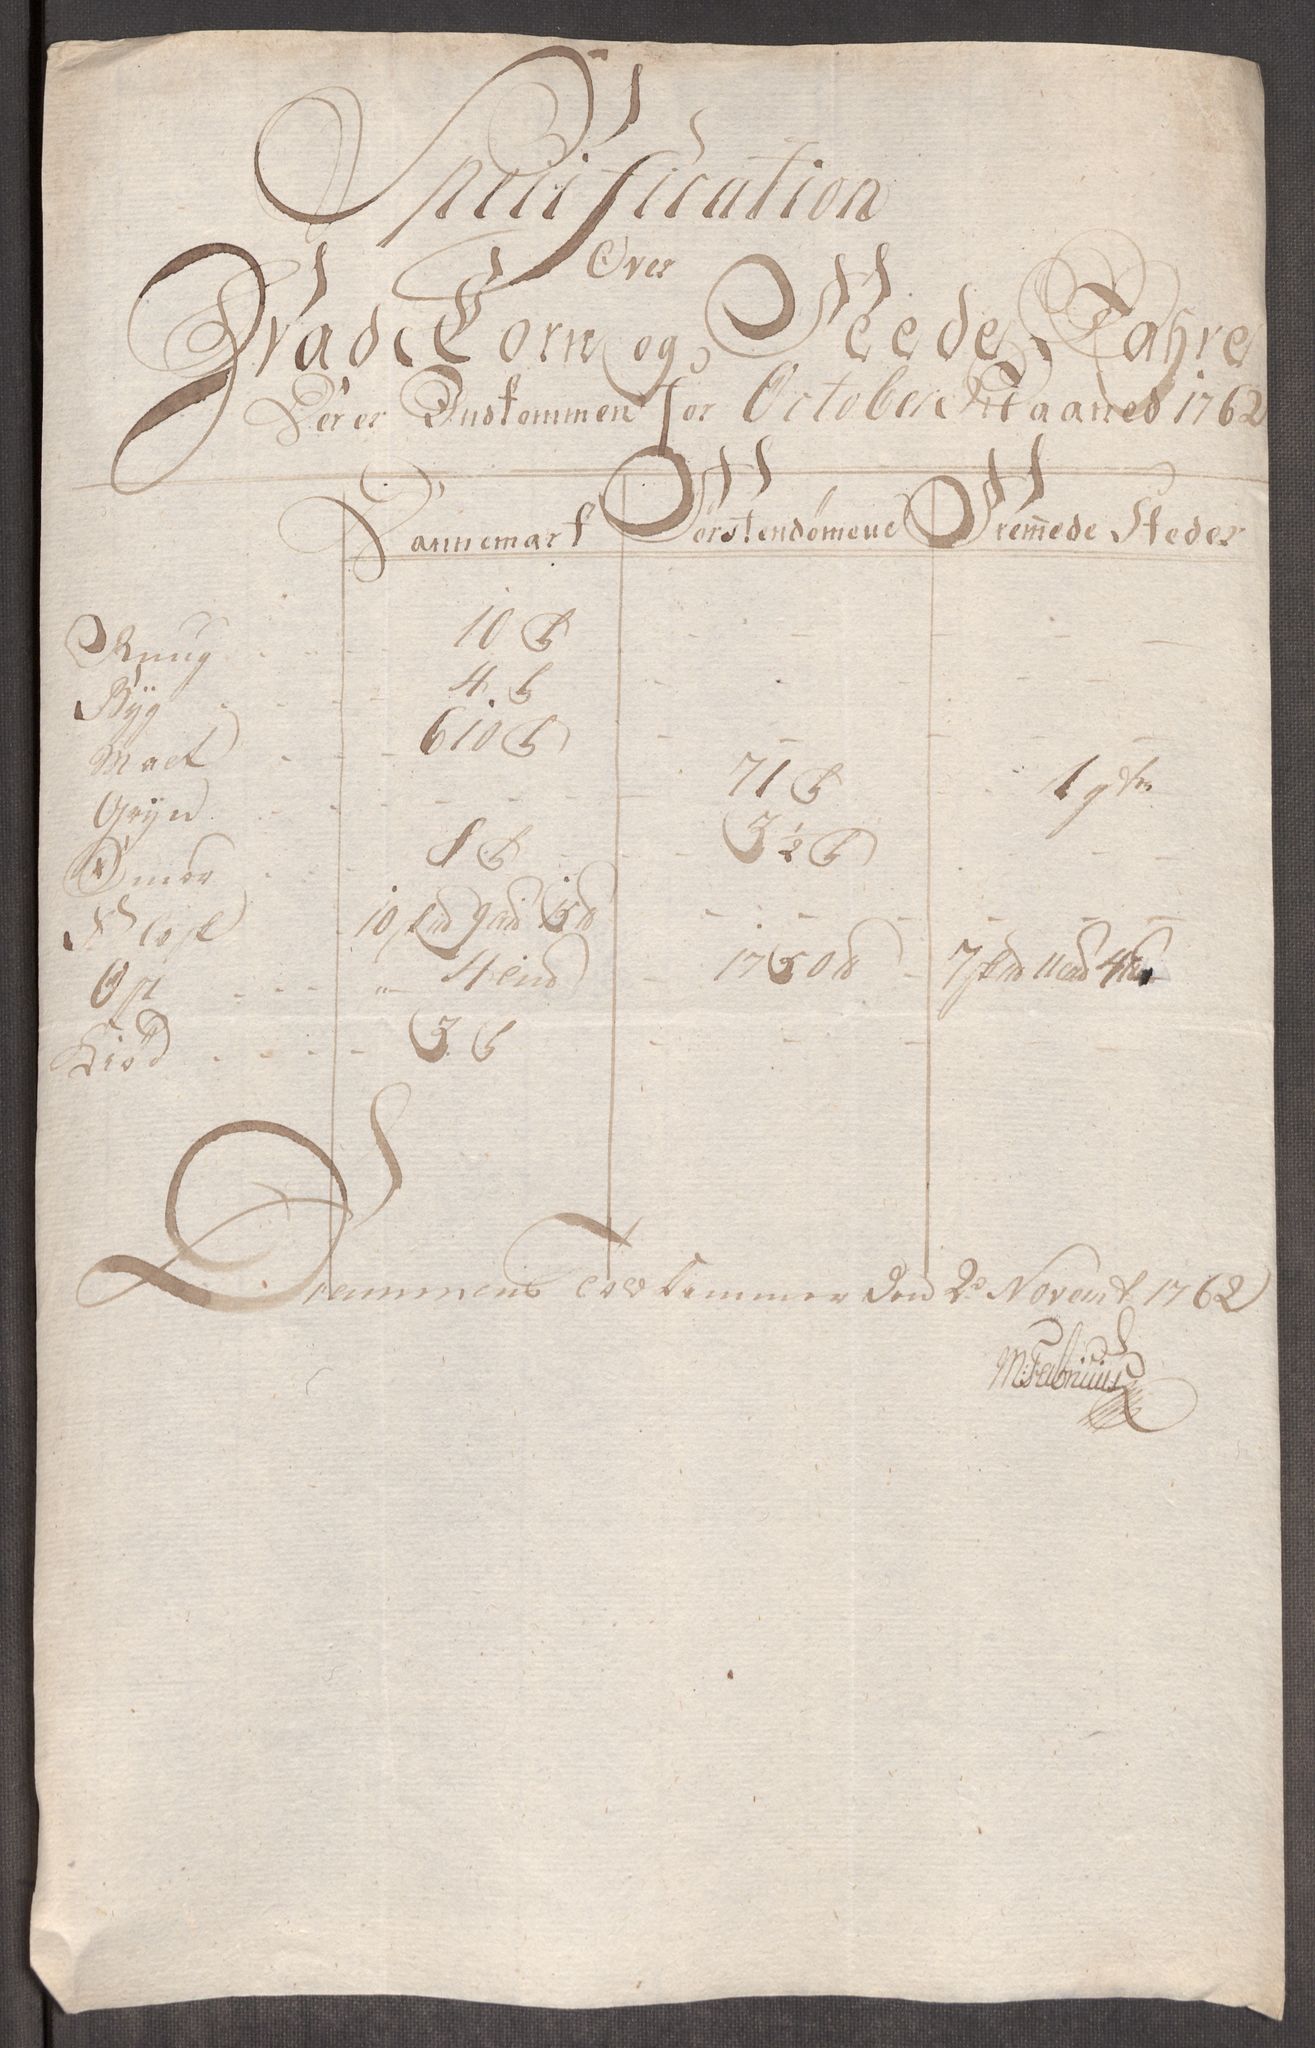 Specification
Over
Hvad Corn og Feede Vahre
Der er Indkommen for October Maaned 1762
Dannemark Førstendømene Fremmede Steder
Roug 10 tr - -
Byg 4 tr - -
Malt 610 tr - -
Gryn - 71 tr 1 qtr
Smør 8 tr 3 1/2 tr -
10 - -
Ost " 4 1750 7
Kiød 3 tr - -
Drammens Told Kammer den 2 Novemb 1762
M: Fabricius